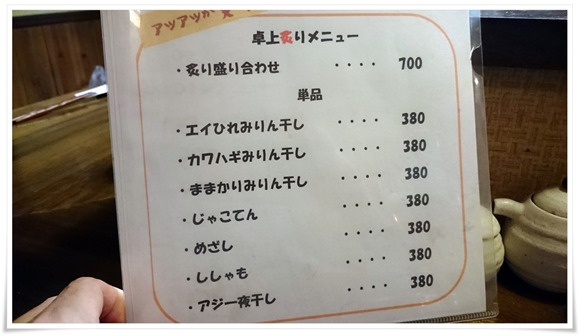 アツアツが
卓上炙りメニュー
・炙り盛り合わせ ・・・・ 700
単品
・エイひれみりん干し ・・・・ 380
・カワハギみりん干し ・・・・ 380
・ままかりみりん干し ・・・・ 380
・じゃこてん ・・・・ 380
・めざし ・・・・ 380
・ししゃも ・・・・ 380
・アジ一夜干し ・・・・ 380